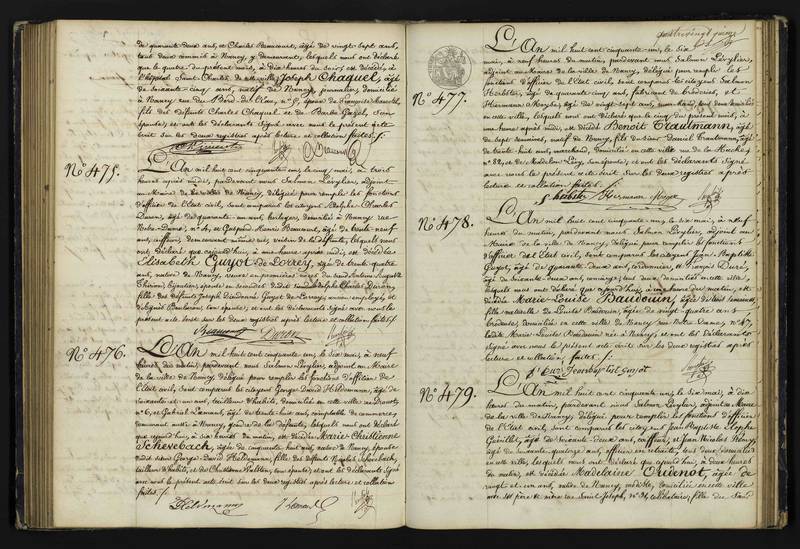 de quarante deux ans, et Charles Beaucourt, âgé de vingt-sept ans,
tous deux commis à Nancy, y demeurant, lesquels nous ont déclaré
que le quatre du présent mois, à dix heures du soir, est décédé, à
l'hôpital Saint Charles de cette ville, Joseph Chaquel, âgé
de soixante-cinq ans, natif de Nancy, journalier, domicilié
à Nancy rue du Bord de l'Eau, n° 5, époux de Françoise
fils des défunts Charles Chaquel et de Barbe Gazel, son
épouse; et ont les déclarants signé avec nous le présent acte
écrit sur les deux registres après lecture et collation faites ./.
N° 475.
L'An mil huit cent cinquante-un, le cinq mai, à trois
heures après midi, pardevant nous Salmon Lévylier, adjoint
au Maire de la ville de Nancy, délégué pour remplir les fonctions
d'officier de l'Etat civil, sont comparus les citoyens Adolphe Charles
Duron, âgé de quarante-un ans, horloger, domicilié à Nancy rue
Notre-Dame, n° 4, et Gaspard Henri Beaucourt, âgé de trente-neuf
ans, coiffeur, demeurant même rue, voisin de la défunte, lesquels nous
ont déclaré que cejourd'hui, à une heure après midi, est décédée
Elisabeth Guyot de Lorrey, âgée de trente-quatre
ans, native de Nancy, veuve en premières noces de
Thirion, bijoutier, épouse en secondes dudit Adolphe Charles Duron,
fille des défunts Joseph Dieudonné Guyot de Lorrey, ancien employé, et
son épouse; et ont les déclarants signé avec nous le
présent acte écrit sur les deux registres après lecture et collation faites ./.
N° 476.
L'An mil huit cent cinquante un, le six mai, à neuf
heures du matin, pardevant nous Salmon Lévylier, adjoint au Maire
de la ville de Nancy, délégué pour remplir les fonctions d'officier de
l'Etat civil, sont comparus les citoyens George David Haldemann, âgé de
soixante et un ans, tailleur d'habits, domicilié en cette ville rue
n° 6, et Gabriel Léonard, âgé de trente-huit ans, comptable de commerce,
demeurant aussi à Nancy, gendre de la défunte, lesquels nous ont déclaré
que cejourd'hui, à six heures du matin, est décédée Marie-Christienne
Schevebach, âgée de cinquante huit ans, native de Nancy, épouse
dudit sieur George David Haldemann, fille des défunts Nicolas Schevebach,
tailleur d'habits, et de Christienne son épouse; et ont les déclarants signé
avec nous le présent acte écrit sur les deux registres après lecture et collation
faites ./.
Haldemann Léonard
N° 477.
L'An mil huit cent cinquante-un, le six
mai, à neuf heures du matin, pardevant nous Salmon Lévylier,
adjoint au Maire de la ville de Nancy, délégué pour remplir les
fonctions d'officier de l'Etat civil, sont comparus les citoyens Salmon
Herbster, âgé de cinquante ans, fabricant de broderies, et
Hermann Mayer, âgé de vingt-sept ans, marchand, tous deux domiciliés
en cette ville, lesquels nous ont déclaré que le cinq du présent mois, à
une heure après midi, est décédé Benoit Trautmann, âgé
de sept semaines, natif de Nancy, fils du sieur Daniel Trautmann, âgé
de trente huit ans, marchand, domicilié en cette ville rue de la Hache,
n° 82, et de Madeleine Lévy, son épouse; et ont les déclarants signé
avec nous le présent acte écrit sur les deux registres après
lecture et collation faites ./.
S. herbster Hermann Mayer
N° 478.
L'An mil huit cent cinquante-un, le six mai, à neuf
heures du matin, pardevant nous Salmon Lévylier, adjoint au
Maire de la ville de Nancy, délégué pour remplir les fonctions
d'officier de l'Etat civil, sont comparus les citoyens Jean Baptiste
Guyot, âgé de quarante-deux ans, cordonnier, et François Duré,
âgé de soixante-deux ans, concierge, tous deux domiciliés en cette ville,
lesquels nous ont déclaré que cejourd'hui, à une heure du matin, est
décédée Marie-Louise Baudouin, âgée de trois semaines,
fille naturelle de Louise Baudouin, âgée de vingt-quatre ans,
brodeuse, domiciliée en cette ville de Nancy rue Notre-Dame, n° 47,
ladite Marie Louise Baudouin née à Nancy; et ont les déclarants
signé avec nous le présent acte écrit sur les deux registres après
lecture et collation faites ./.
N° 479.
L'An mil huit cent cinquante un, le six mai, à dix
heures du matin, pardevant nous Salmon Lévylier, adjoint au Maire
de la ville de Nancy, délégué pour remplir les fonctions d'officier
de l'Etat civil, sont comparus les citoyens Jean Baptiste Joseph
âgé de soixante-deux ans, coiffeur, et Jean Nicolas
âgé de soixante-quatorze ans, officier en retraite, tous deux domiciliés
en cette ville, lesquels nous ont déclaré que cejourd'hui, à deux heures
du matin, est décédée Madeleine Oudenot, âgée de
vingt-et-un ans, native de Nancy, modiste, domiciliée en cette ville
avec ses père et mère rue Saint Joseph, n° 34, célibataire, fille du sieur